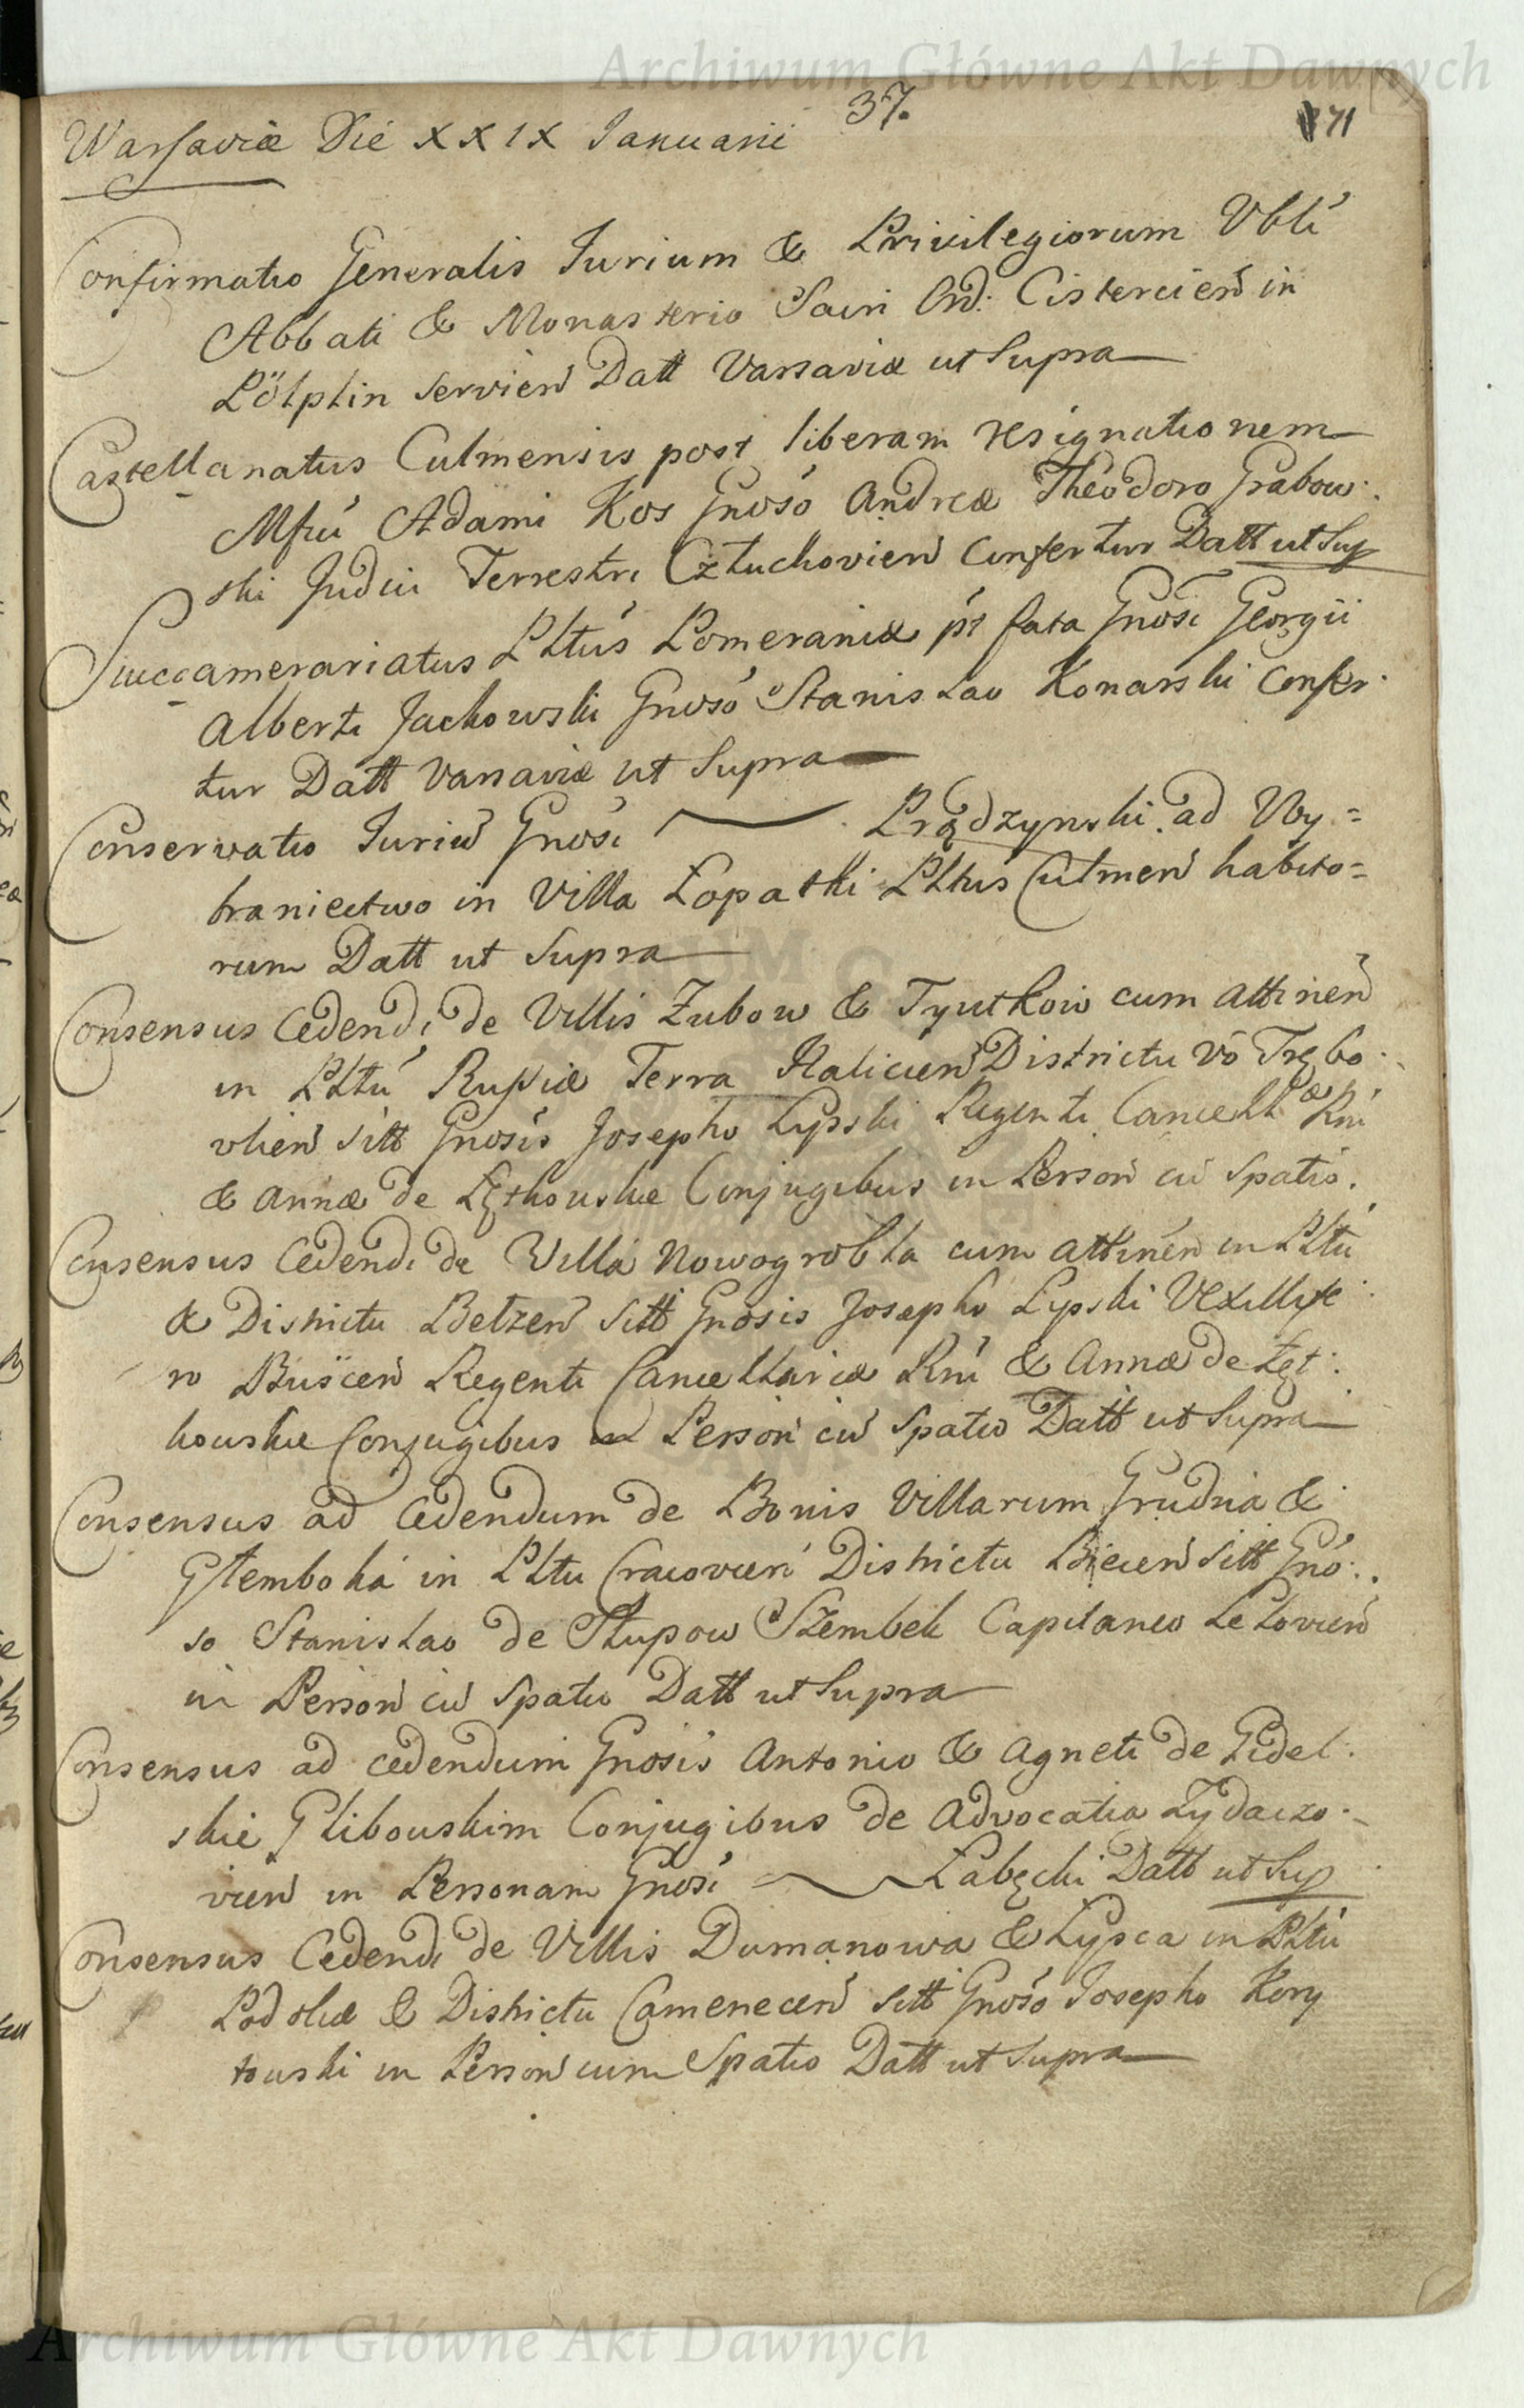 Archiwum Główne Akt Dawnych
37.
71
Warsaviæ Die XXIX Ianuarii
Confirmatio Generalis Iurium & Privilegiorum Vbli
Abbati & Monasterio Sacri Ord: Cistercien in
Pölplin servien Datt Varsaviæ ut Supra
Castellanatus Culmensis post liberam resignationem
Mfci Adami Kos Gnoso Andreæ Theodoro Grabow:
ski Judici Terrestri Człuchovien confertur Datt ut Sup
Succamerariatus Pltus Pomeraniæ pt fata Gnosi Georgii
Alberti Jackowski Gnoso Stanislao Konarski confer:
tur Datt Varsaviæ ut Supra
Conservatio Iuriu Gnosi Prądzynski ad Wy=
braniectwo in Villa Łopatki Pltus Culmen habito=
rum Datt ut Supra
Consensus Cedendi de Villis Zubow & Tyutkow cum attinen
in Pltu Russiæ Terra Halicien Districtu vo Trębo:
vlien sitt Gnosis Josepho Lipski Regenti Cancellæ Rni
& Annæ de Łętkouskie Conjugibus in Person cu spatio.
Consensus Cedendi de Villa Nowogrobla cum attinen in Pltu
& Districtu Belzen sitt Gnosis Josepho Lipski Vexillife:
ro Buscen Regenti Cancellariæ Rni & Annæ de Łęt:
kouskie Conjugibus in Person cu spatio Datt ut Supra
Consensus ad cedendum de Bonis Villarum Grudna &
Głemboka in Pltu Cracovien Districtu Biecen sitt Gno:
so Stanislao de Słupow Szembek Capitaneo Lelovien
in Person cu spatio Datt ut Supra
Consensus ad cedendum Gnosis Antonio & Agneti de Gidel:
skie Glibouskim Conjugibus de Advocatia Zydaczo:
vien in Personam Gnosi Łabęcki Datt ut Sup
Consensus Cedendi de Villis Dumanowa & Lysca in Pltu
Podoliæ & Districtu Camenecen sitt Gnoso Iosepho Kory
touski in Person cum Spatio Datt ut Supra
Archiwum Główne Akt Dawnych